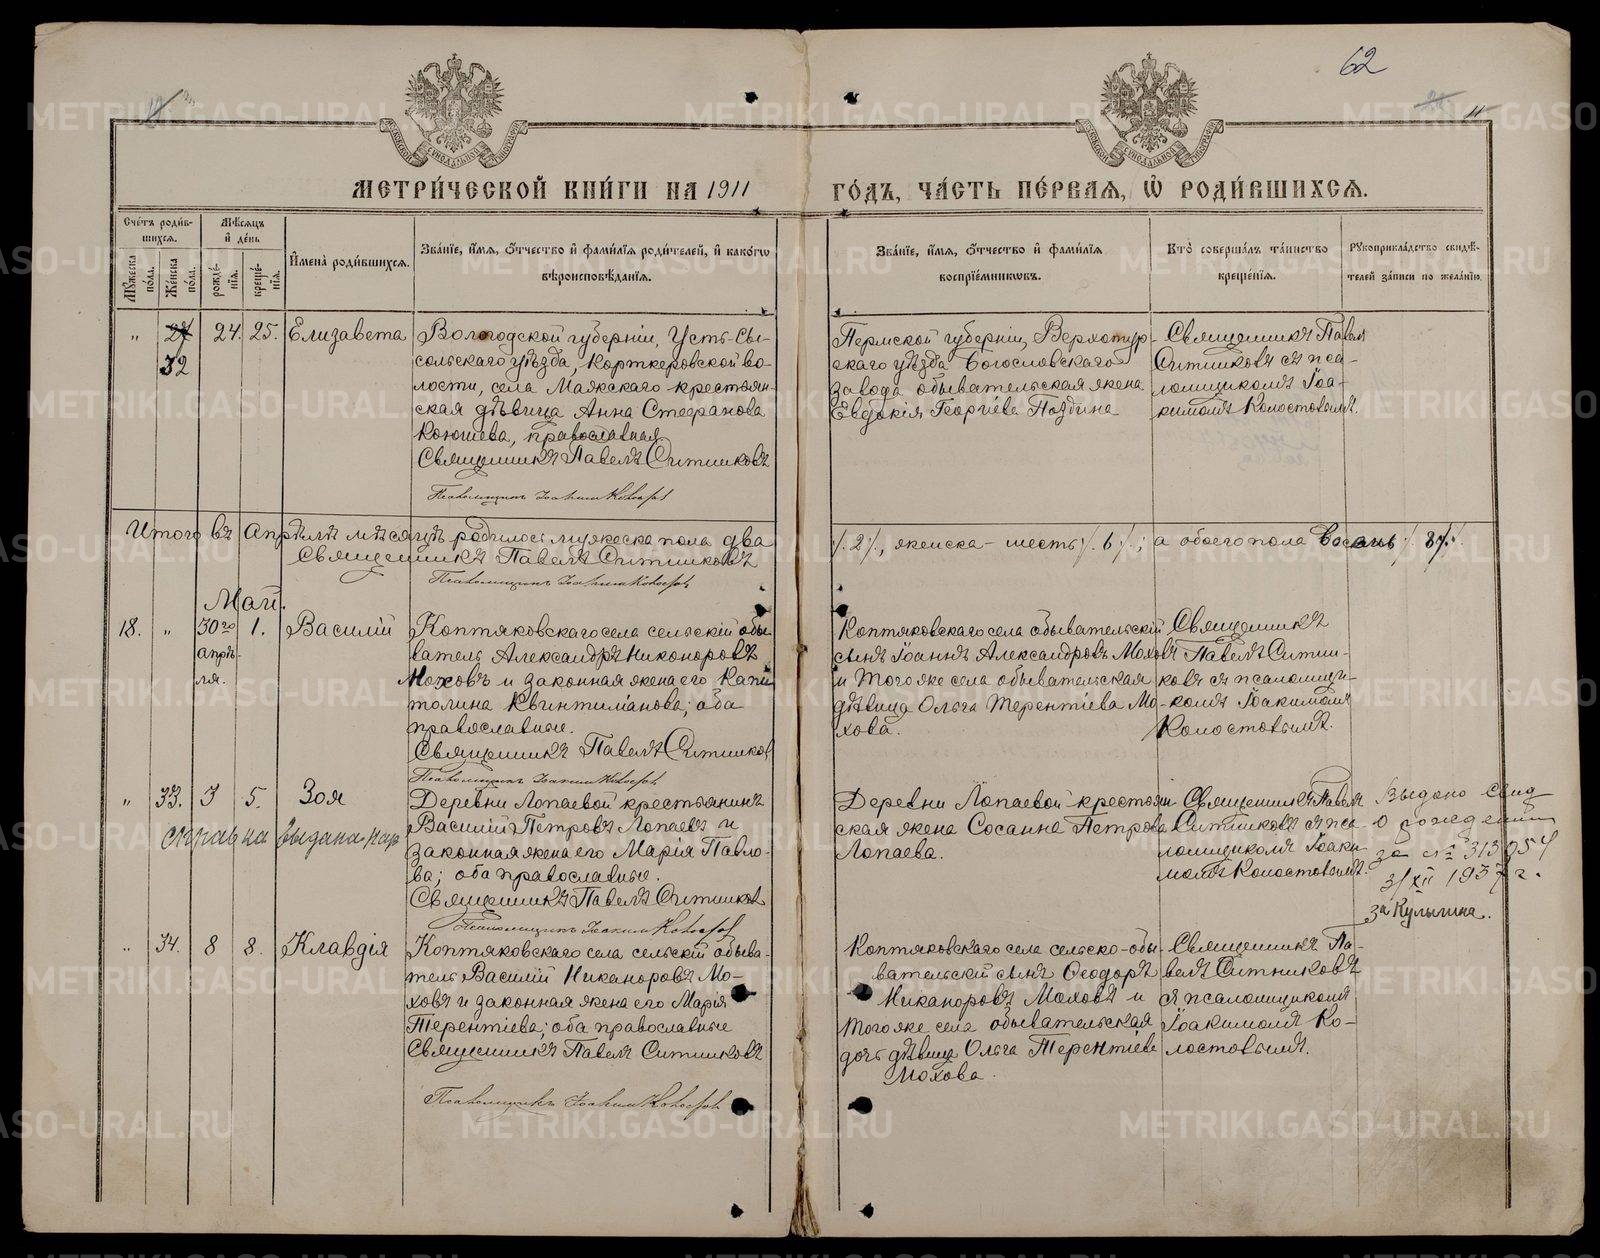 62
11
МЕТРИ́ЧЕСКОЙ КНИ́ГИ НА 1911
ГО́ДЪ, ЧА́СТЬ ПЕ́РВАЯ, Ѡ РОДИ́ВШИХСЯ.
Сче́тъ роди́в-
шихся.
Мѣ́сяцъ
и де́нь
Мꙋ́жеска по́ла.
Же́нска по́ла.
рожде́-
нїя.
креще́-
нїя.
Имена̀ роди́вшихся.
Зва́нїе, и́мя, о́тчество и фами́лїя роди́телей, и како́гѡ
вѣроисповѣ́данїя.
Зва́нїе, и́мя, о́тчество и фами́лїя
воспрїе́мникѡвъ.
Кто̀ соверша́лъ та́инство
креще́нїя.
Рꙋкоприкла́дство свидѣ́-
телей за́писи по жела́нїю.
„ 27 24. 25. Елизавета
32
Вологодской губерніи, Усть-Сы-
сольскаго уѣзда, Корткеровской во-
лости, села Маякскаго крестьян-
ская дѣвица Анна Стефанова
Коюшева, православная
Священникъ Павелъ Ситниковъ
Псаломщикъ Іоакимъ Колостов
Пермской губерніи, Верхотур-
скаго уѣзда Богословскаго
завода обывательская жена
Евдокія Георгіева Поздина
Священникъ Павелъ
Ситниковъ съ пса-
ломщикомъ Іоа-
кимомъ Колостовымъ.
Итого въ Апрѣлѣ мѣсяцѣ родилось мужеска пола два
./. 2 ./., женска - шесть ./. 6 ./.; а обоего пола восемь ./. 8 ./.
Священникъ Павелъ Ситниковъ
Псаломщикъ Іоакимъ Колостов
Май.
18. „ 30го 1. Василій
апрѣ-
ля.
Коптяковскаго села сельскій обы-
ватель Александръ Никоноровъ
Моховъ и законная жена его Капи-
толина Квинтиліанова; оба
православные.
Священникъ Павелъ Ситников
Псаломщикъ Іоакимъ Колостов
Коптяковскаго села обывательскій
сынъ Іоаннъ Александровъ Мохов
и того же села обывательская
дѣвица Ольга Терентіева Мо-
хова.
Священникъ
Павелъ Ситни-
ковъ съ псаломщи-
комъ Іоакимомъ
Колостовымъ.
„ 33. 3 5. Зоя
справка выдана
Деревни Лопаевой крестьянинъ
Василій Петровъ Лопаевъ и
законная жена его Марія Павло-
ва; оба православные.
Священникъ Павелъ Ситников
Псаломщикъ Іоакимъ Колостов
Деревни Лопаевой крестьян-
ская жена Сосанна Петрова
Лопаева.
Священникъ Павелъ
Ситниковъ съ пса-
ломщикомъ Іоаки-
момъ Колостовымъ.
Выдано свид
о рождении
за № 313054
3/XII 1937 г.
за Кулыгина.
„ 34. 8 8. Клавдія
Коптяковскаго села сельскій обыва-
тель Василій Никаноровъ Мо-
ховъ и законная жена его Марія
Терентіева; оба православные
Священникъ Павелъ Ситниковъ
Псаломщикъ Іоакимъ Колостов
Коптяковскаго села сельско-обы-
вательскій сынъ Ѳеодоръ
Никаноровъ Моховъ и
того же села обывательская
дочь дѣвица Ольга Терентіева
Мохова.
Священникъ Па-
велъ Ситниковъ
съ псаломщикомъ
Іоакимомъ Ко-
лостовымъ.
METRIKI.GASO-URAL.RU